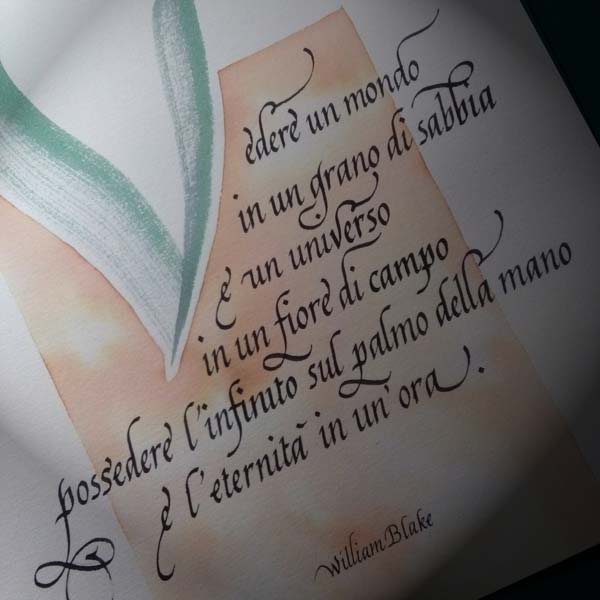 Vedere un mondo
in un grano di sabbia
e un universo
in un fiore di campo
possedere l'infinito sul palmo della mano
e l'eternità in un'ora.
William Blake